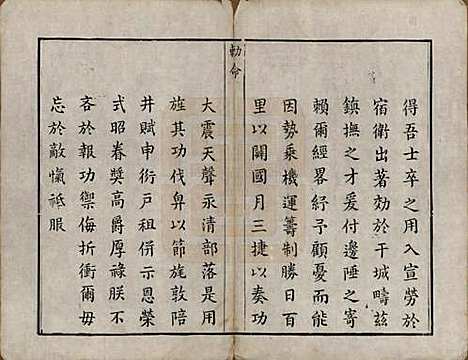 得吾士卒之用入宣勞於
宿衛出著効於干城疇茲
鎮撫之才爰付邊陲之寄
賴爾經畧紓予顧憂而能
因勢乗機運籌制勝日百
里以闢國月三捷以奏功
勅命
大震天聲汞清部落是用
旌其功伐畁以節旄敦陪
井賦申衍戸租倂示恩榮
式昭眷奬高爵厚祿朕不
吝於報功禦侮折衝爾毋
忘於敵愾祗服